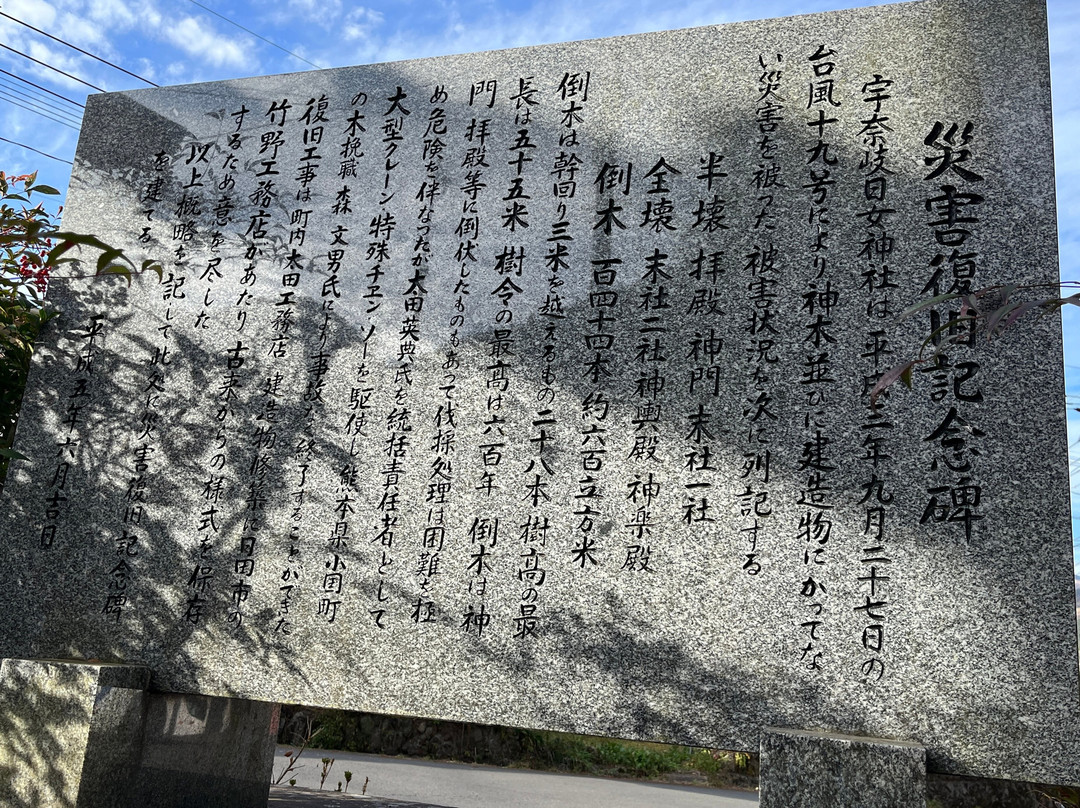 災害復旧記念碑
宇奈岐日女神社は平成三年九月二十七日の
台風十九号により神木並びに建造物にかってな
い災害を被った被害状況を次に列記する
半壊 拝殿 神門 末社一社
全壊 末社二社 神輿殿 神楽殿
倒木 百四十四本 約六百立方米
倒木は幹回り三米を越えるもの二十八本 樹高の最
長は五十五米 樹令の最高は六百年 倒木は神
門 拝殿等に倒伏したものもあって伐採処理は困難を極
め危険を伴なったが太田英典氏を統括責任者として
大型クレーン 特殊チエンソーを駆使し熊本県小国町
の木挽職 森 文男氏により事故なく終了することができた
復旧工事は町内太田工務店 建造物修築に日田市の
竹野工務店があたり 古来からの様式を保存
するため意を尽した
以上概略を記して此処に災害復旧記念碑
を建てる
平成五年六月吉日